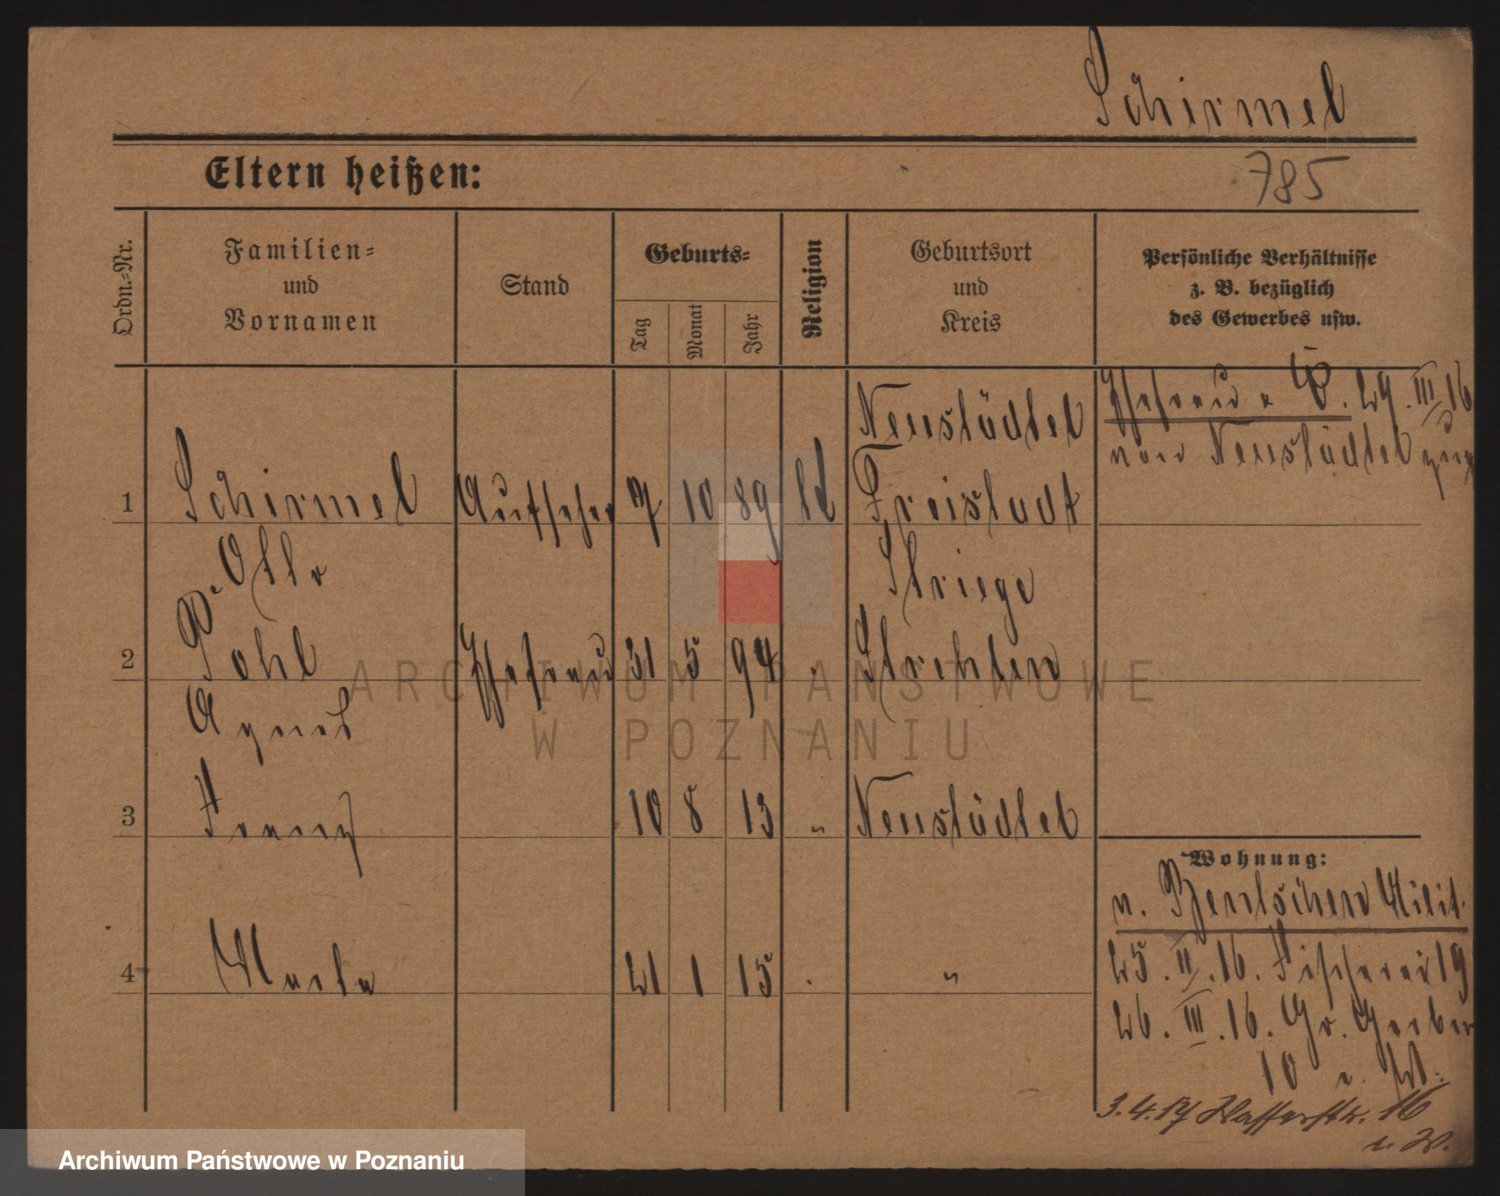 Schirmel
Eltern heißen:
785
Ordn.-Nr.
Familien-
und
Vornamen
Stand
Geburts-
Tag
Monat
Jahr
Religion
Geburtsort
und
Kreis
Persönliche Verhältnisse
z. B. bezüglich
des Gewerbes usw.
Ehefrau u. 29. III 16
von Neustädtel
Neustädtel
1 Schirmel Aufseher 7 10 89 Freistadt
Otto
Striege
2 Pohl Ehefrau 31 5 94 Strehlen
Agnes
3 10 8 13 " Neustädtel
Wohnung:
n. Bentschen Milit.
4 21 1 15 "
25. II. 16. Fischerei 19
26. III. 16. Gr. Gerber
10 W.
3. 4. 17 16
W.
ARCHIWUM PAŃSTWOWE
W POZNANIU
Archiwum Państwowe w Poznaniu